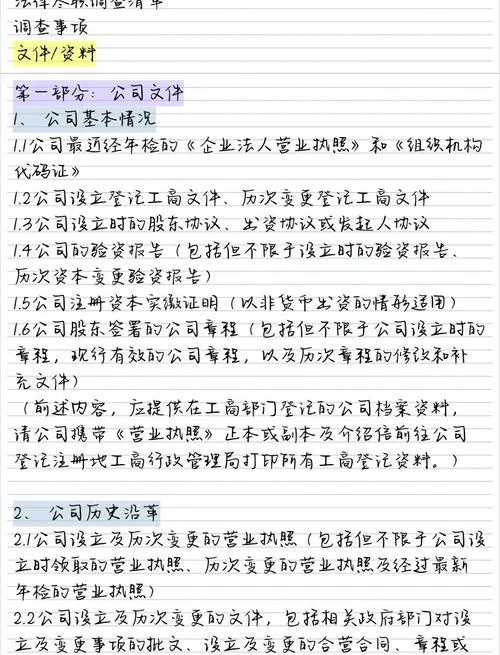 法律尽职调查清单
调查事项
文件/资料
第一部分：公司文件
1、 公司基本情况
1.1公司最近经年检的《企业法人营业执照》和《组织机构
代码证》
1.2公司设立登记工商文件、历次变更登记工商文件
1.3公司设立时的股东协议、出资协议或发起人协议
1.4公司的验资报告（包括但不限于设立时的验资报告、
历次资本变更验资报告）
1.5公司注册资本实缴证明（以非货币出资的情形适用）
1.6公司股东签署的公司章程（包括但不限于公司设立时的
章程，现行有效的公司章程，以及历次章程的修改和补
充文件）
（前述内容，应提供在工商部门登记的公司档案资料，
请公司携带《营业执照》正本或副本及介绍信前往公司
登记注册地工商行政管理局打印所有工商登记资料。）
2、 公司历史沿革
2.1公司设立及历次变更的营业执照（包括但不限于公司设
立时领取的营业执照、历次变更的营业执照及经过最新
年检的营业执照）
2.2公司设立及历次变更的文件，包括相关政府部门对设
立及变更事项的批文、设立及变更的合营合同、章程或